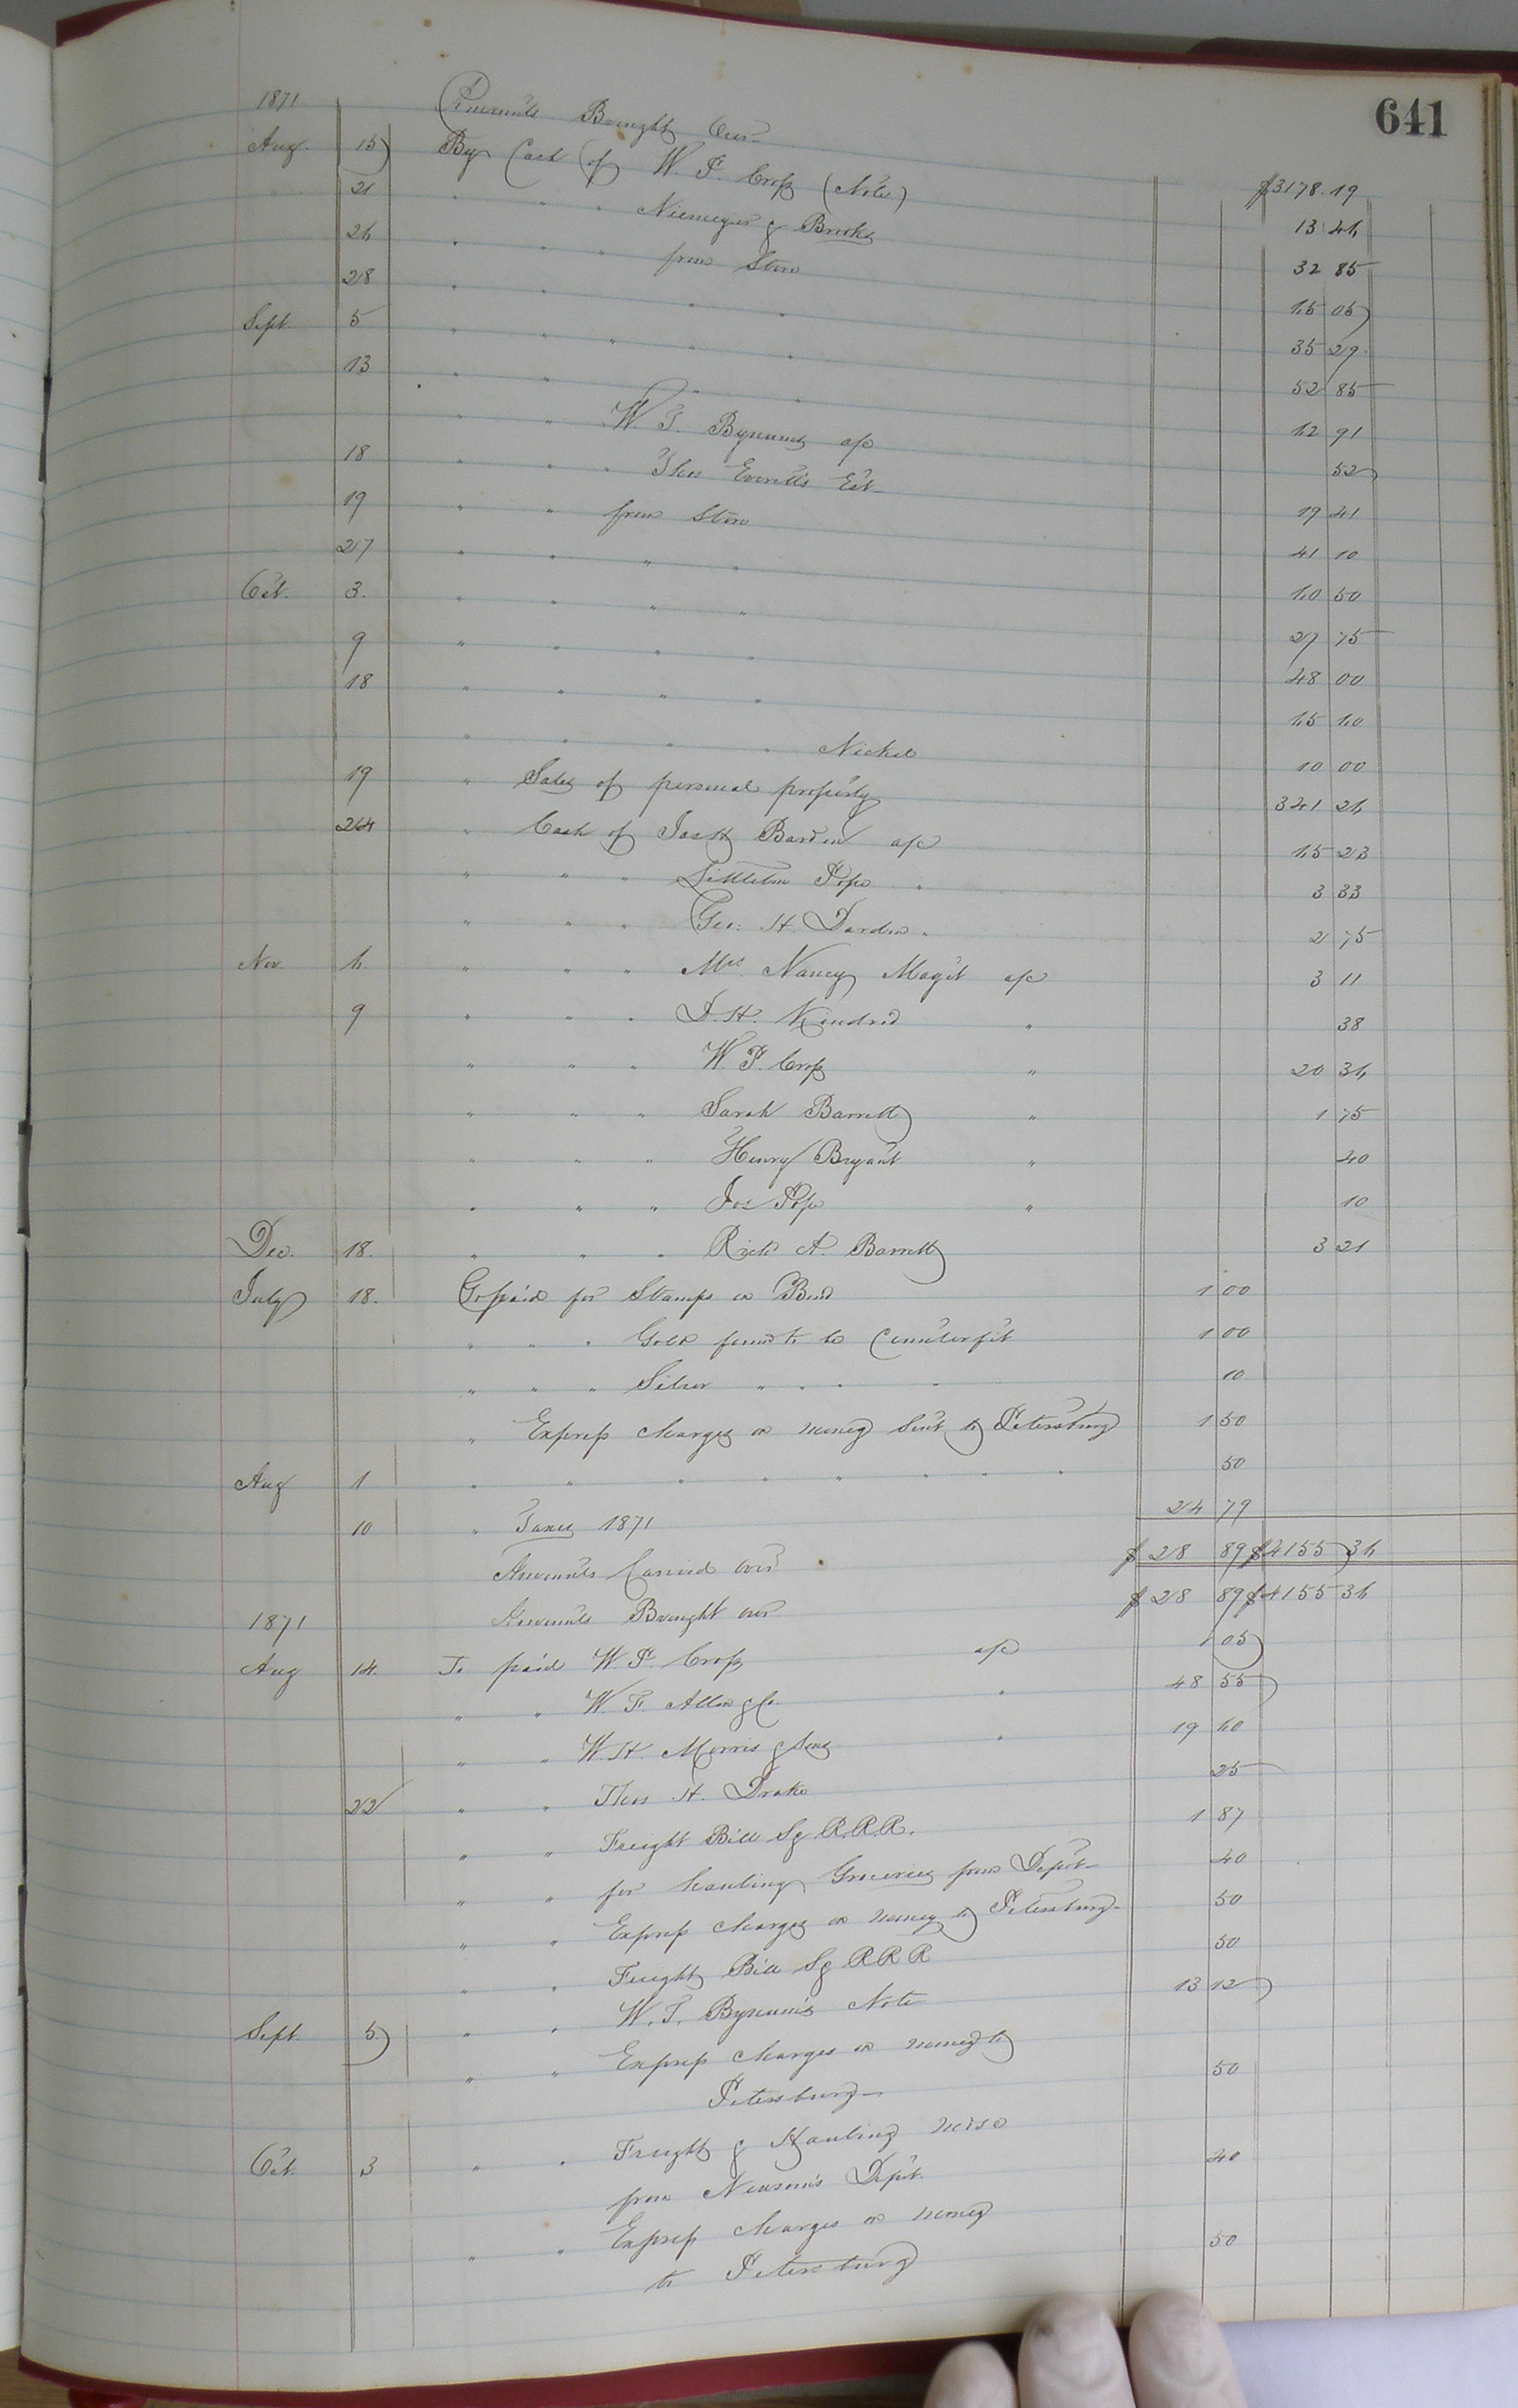 641
1871 Amounts Brought Over $3178.19
Aug. 15 By Cash of W. P. Crop (Note) 13 46
" 21 " " " Niemeyer & Brooks 32 85
26 " " " from Store 65 05
28 " " " " 35 29
Sept. 5 " " " " " 52 85
13 " " " " 62 91
" " W. T. Bynums a/c 52
18 " " " Thos Everett's Est 19 41
19 " " from Store 41 10
27 " " " " 60 50
Oct. 3. " " " " 27 75
9 " " " " 48 00
18 " " " " 65 60
" " " " Nickel 10 00
19 " Sales of personal property 341 26
24 " Cash of Jas H Barden a/c 65 23
" " " Littleton Pope " 3 33
" " " Geo. H. Darden " 2 75
Nov. 6. " " " Mrs Nancy Magit a/c 3 11
9 " " " D. H. Kindred " 38
" " " W. P. Crop " 20 36
" " " Sarah Barrett " 1 75
" " " Henry Bryant " 40
" " " Jos Pope " 10
Dec. 18. " " " Rich A. Barrett 3 21
July 18. To paid for Stamps on Bond 1 00
" " " Gold found to be Counterfit 1 00
" " " Silver " " " " 10
" Express charges on money Sent to Petersburg 1 50
Aug 1 " " " " " " " " 50
10 " Taxes 1871 24 79
Amounts Carried over $28 89 $4155 36
1871 Amounts Brought over $28 89 $4155 36
Aug 14. To paid W. P. Crop a/c 1 05
" " W. F. Allen & Co. " 48 55
" " W. H. Morris & Sons " 19 60
22 " " Thos H. Drake 25
" " Freight Bill S & R.R.R. 1 87
" " for hauling Groceries from Depot 40
" " Express charges on money to Petersburg 50
" " Freight Bill S & R R R 50
Sept. 5 " " W. T. Bynum's Note 13 12
" " Express charges on money to
Petersburg 50
Oct. 3 " " Freight & Hauling mdse
from Newsom's Depot 40
" " Express charges on money
to Petersburg 50